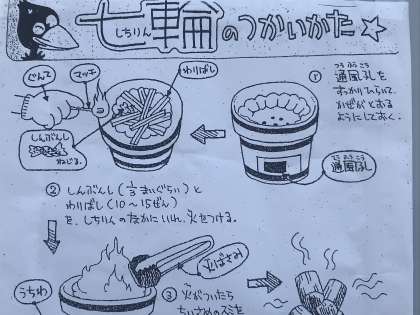 七輪のつかいかた☆
しちりん
ぐんて
マッチ
わりばし
しんぶんし
ねじる。
① つうふうこう
通風孔を
かぜがとおる
ようにしておく。
つうふうこう
通風孔
② しんぶんし(1/3まいぐらい)と
わりばし(10〜15ぜん)
を、しちりんのなかにいれ、火をつける。
うちわ
火ばさみ
③ 火がついたら
ちいさめのスミを